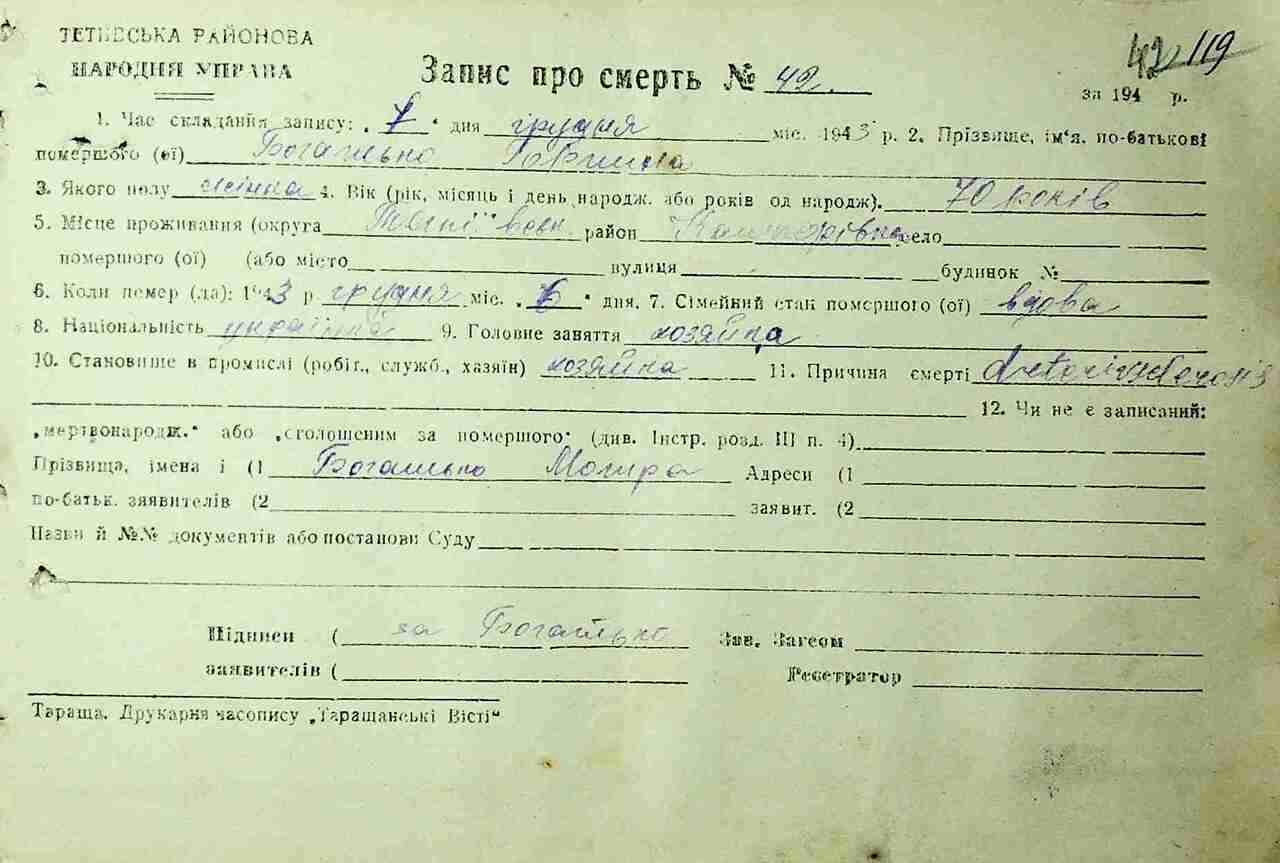 ТЕТІЇВСЬКА РАЙОНОВА
НАРОДНЯ УПРАВА
Запис про смерть № 42.
42 119
за 194 р.
1. Час складання запису: „7“ дня грудня міс. 1943 р. 2. Прізвище, ім'я, по-батькові
помершого (ої) Богатько Горпина
3. Якого полу жінка 4. Вік (рік, місяць і день народж. або років од народж). 70 років
5. Місце проживання (округа район село
помершого (ої) (або місто вулиця будинок №
6. Коли помер (ла): 1943 р. грудня міс. „6“ дня. 7. Сімейний стан помершого (ої) вдова
8. Національність українка 9. Головне заняття хозяйка
10. Становище в промислі (робіт., служб., хазяїн) хозяйка 11. Причина смерті
12. Чи не є записаний:
„мертвонародж.“ або „оголошеним за помершого“ (див. Інстр. розд. III п. 4)
Прізвища, імена і (1 Богатько Мотря Адреси (1
по-батьк. зяявителів (2 заявит. (2
Назви й №№ документів або постанови Суду
Підписи ( за Богатько Зав. Загсом
заявителів ( Реєстратор
Тараща. Друкарня часопису „Таращанські Вісті“